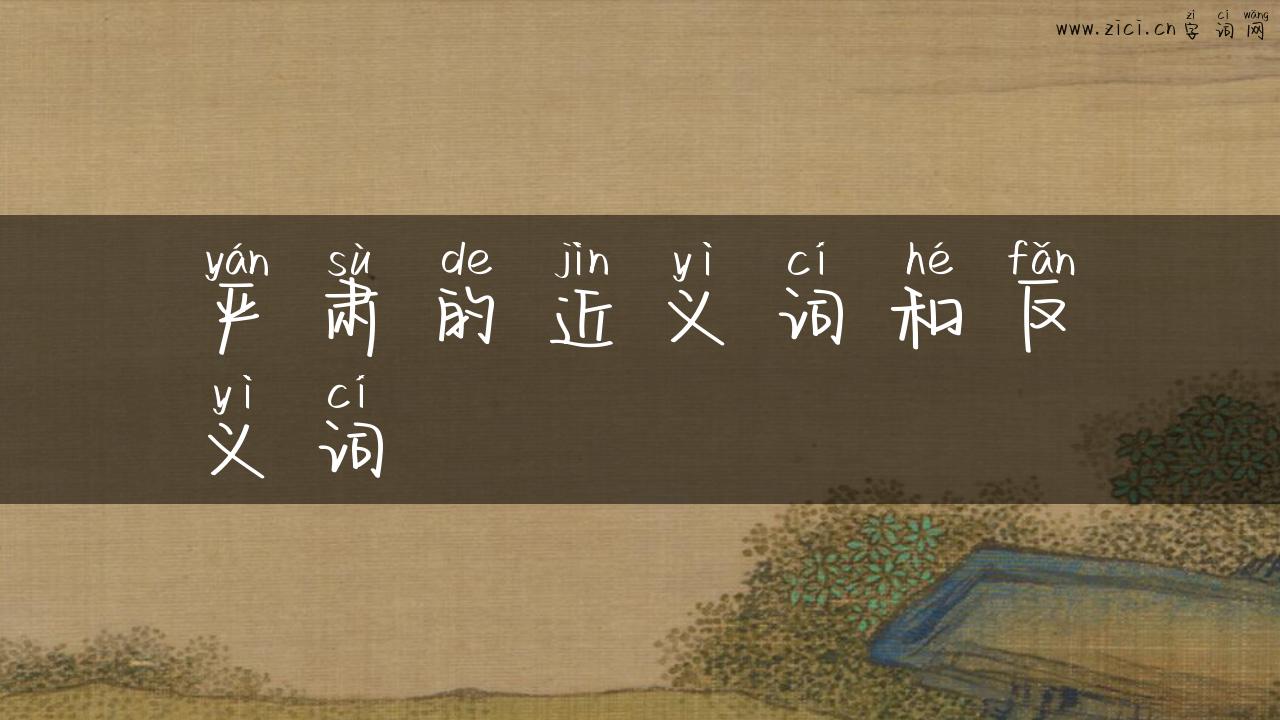 zì cí wǎng
www.zici.cn 字 词 网
yán sù de jìn yì cí hé fǎn
严 肃 的 近 义 词 和 反
yì cí
义 词